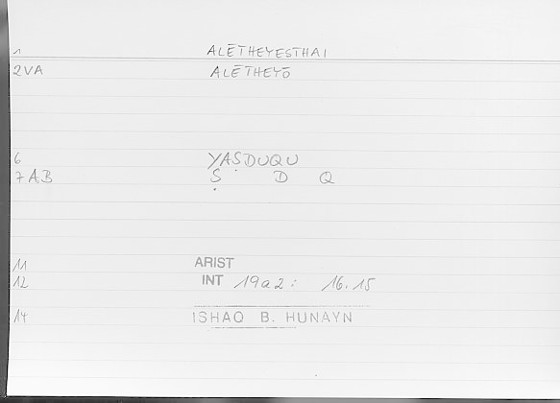 1 ALĒTHEYESTHAI
2VA ALĒTHEYŌ
6 YAṢDUQU
7AB Ṣ D Q
11 ARIST
12 INT 19a2: 16.15
14 ISHAQ B. HUNAYN